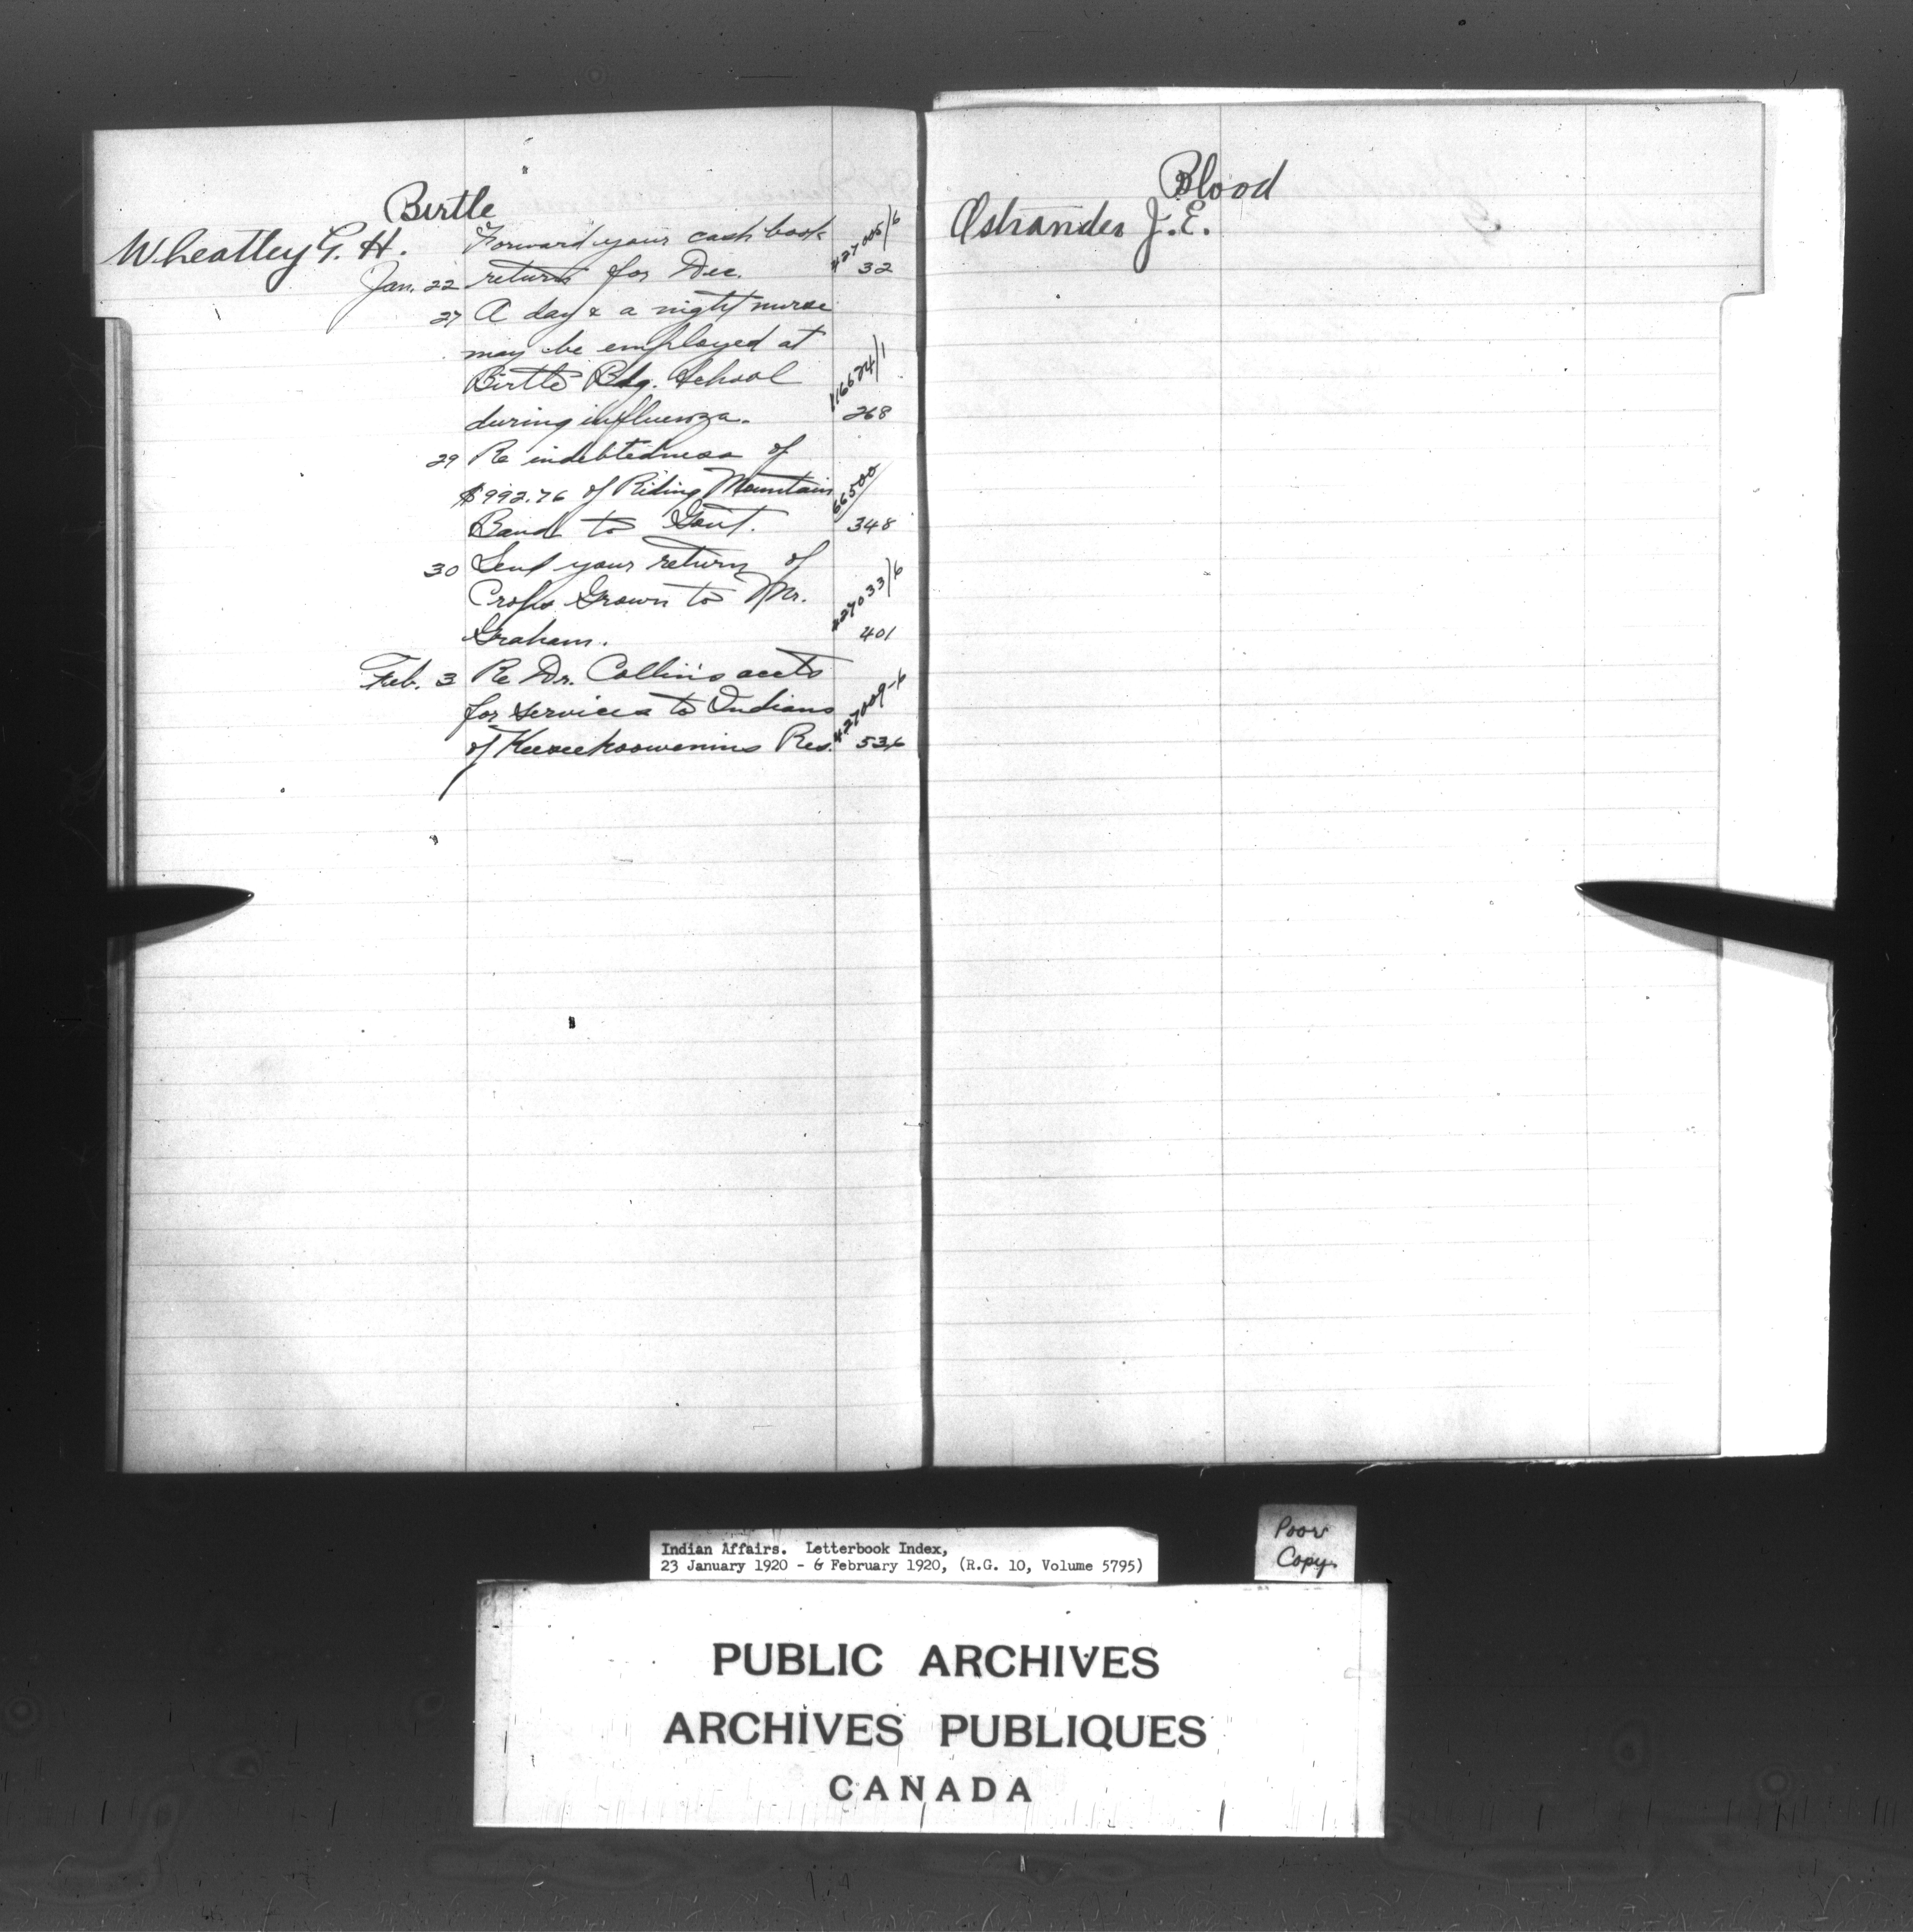 Birtle
Wheatley G. H.
Forward your cash book 427005/6
Jan. 22 returns for Dec. 32
27 A day & a night nurse
may be employed at
Birtle Bdg. School 116624/1
during influenza. 268
29 Re indebtedness of
$992.76 of Riding Mountain 66500
Band to Govt. 348
30 Send your return of
Crops Grown to Mr. 427033/6
Graham. 401
Feb. 3 Re Dr. Collin's accts
for services to Indians 427009-6
of Keeseekoowenins Res. 536
Blood
Ostrander J. E.
Indian Affairs. Letterbook Index,
23 January 1920 - 6 February 1920, (R.G. 10, Volume 5795)
Poor
Copy
PUBLIC ARCHIVES
ARCHIVES PUBLIQUES
CANADA